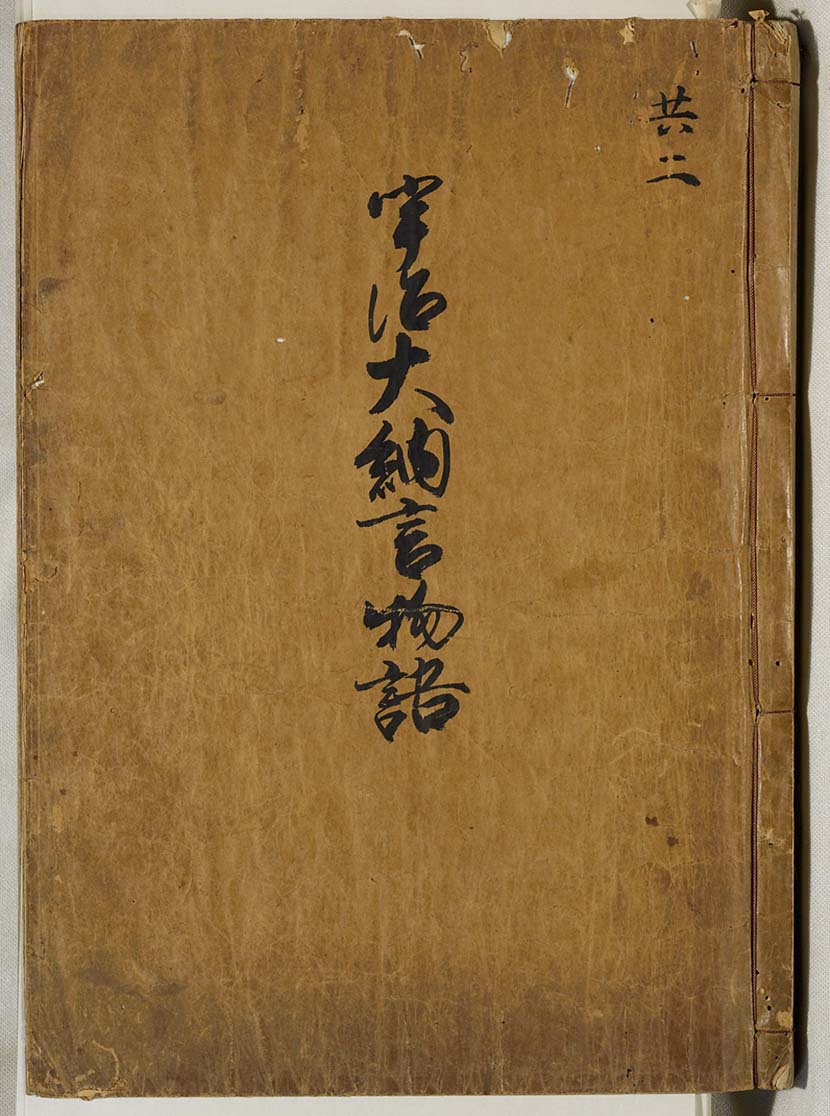 共二
宇治大納言物語